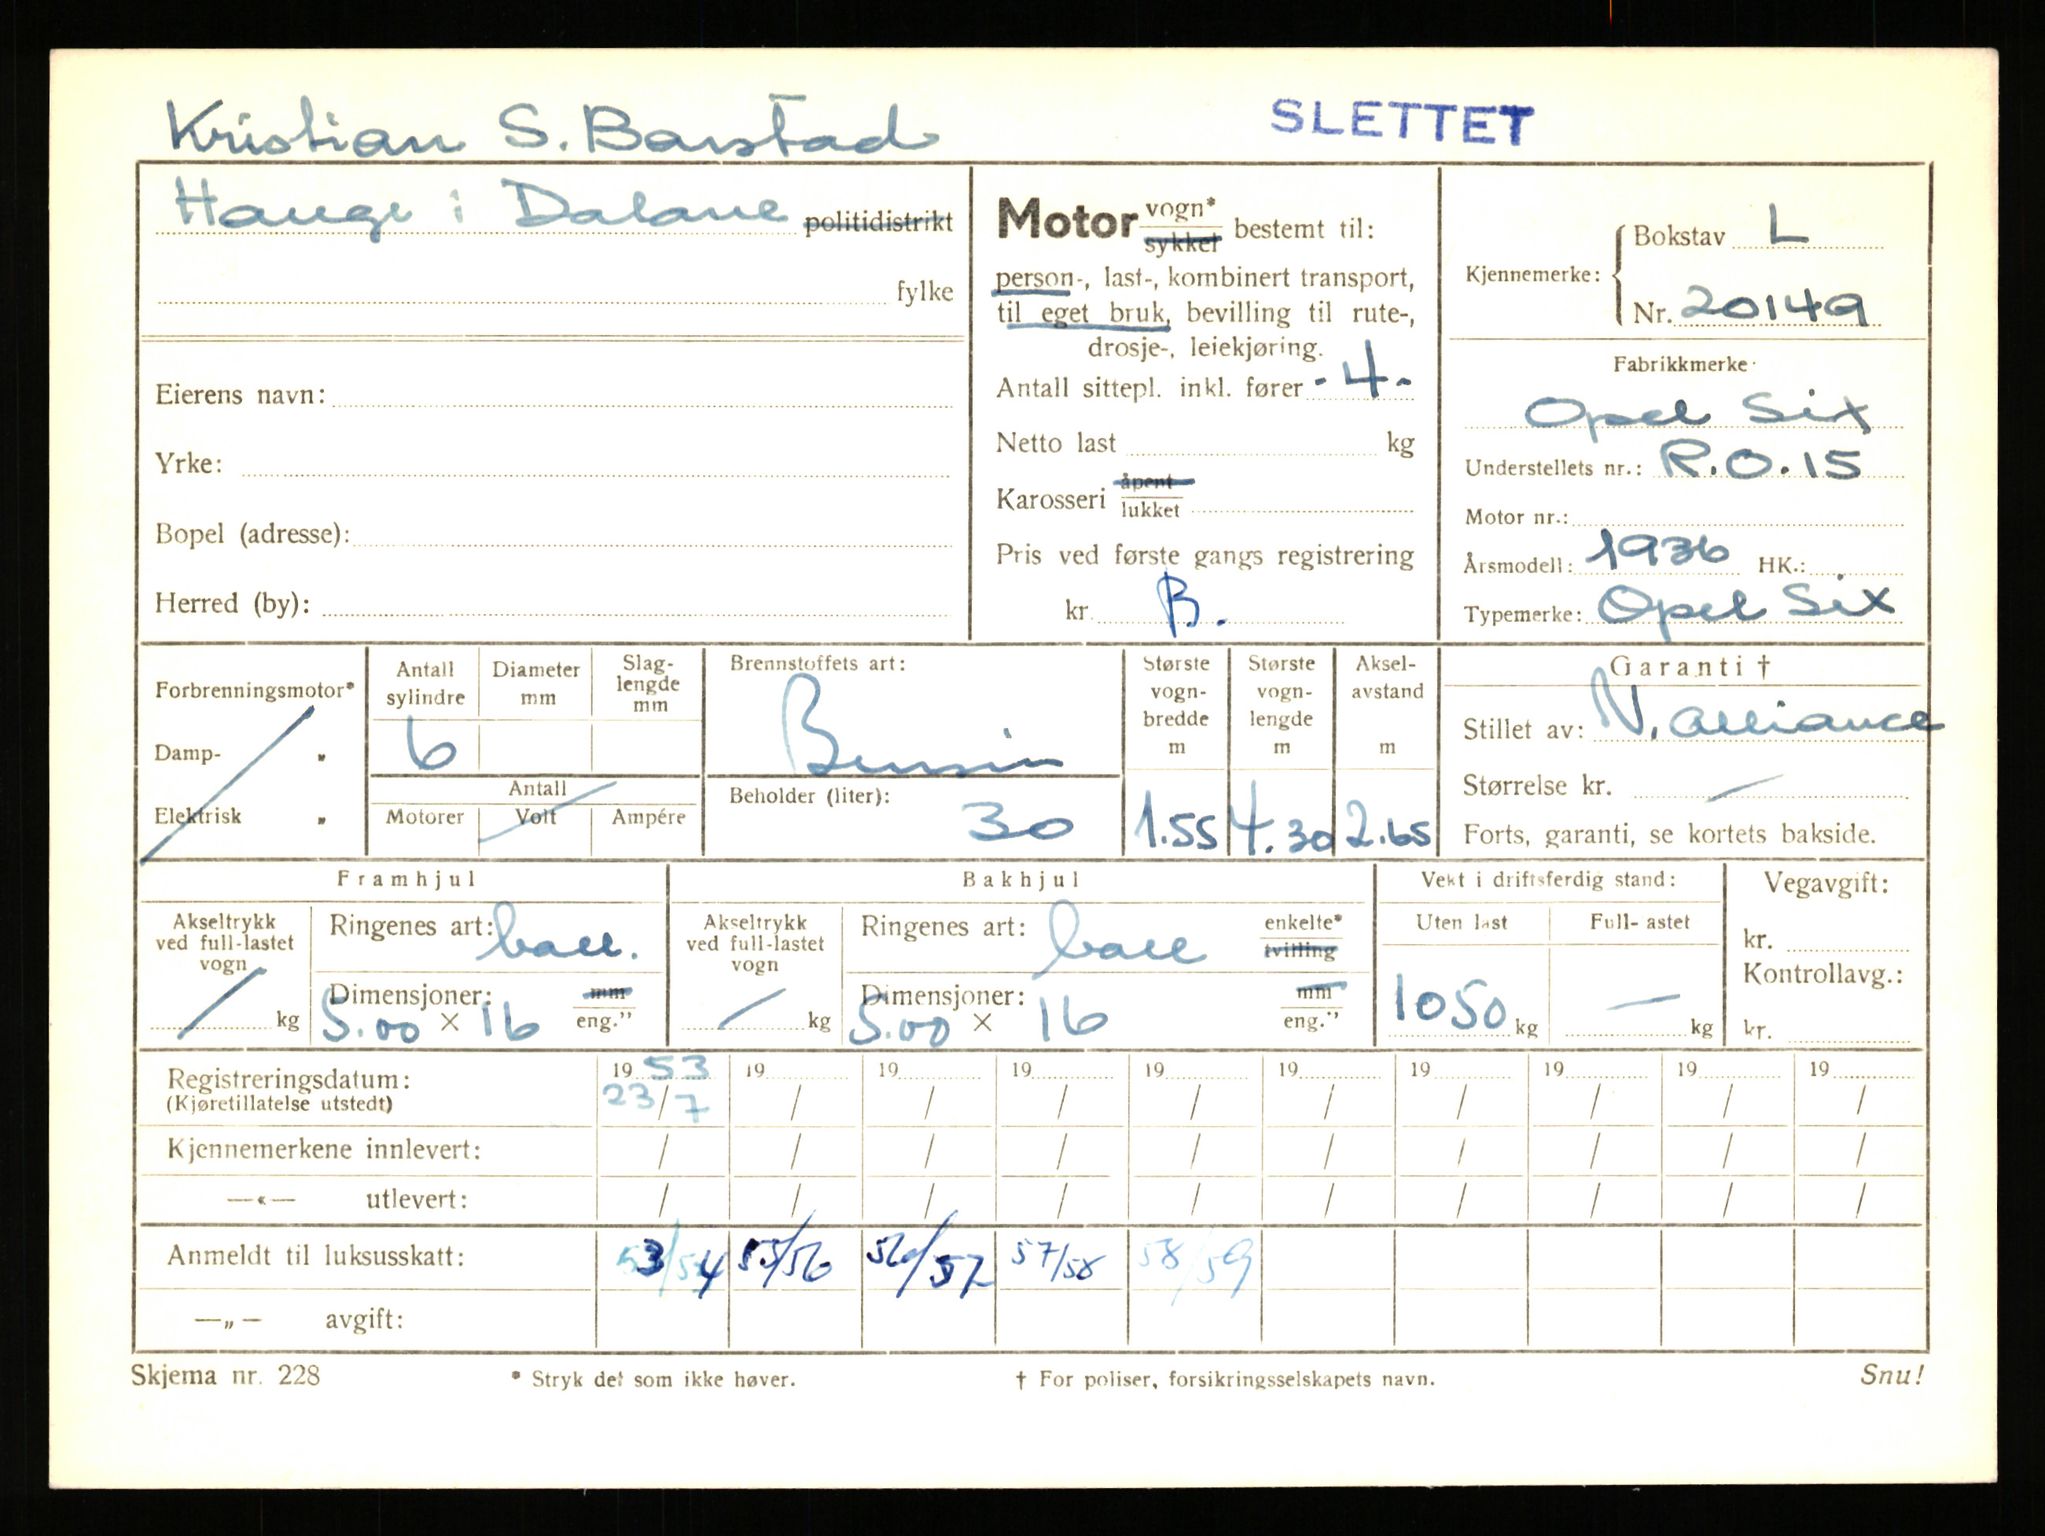 Kristian S. Barstad
SLETTET
Hauge i Dalane politidistrikt
fylke
Eierens navn:
Yrke:
Bopel (adresse):
Herred (by):
Motor vogn* sykkel bestemt til:
person-, last-, kombinert transport,
til eget bruk, bevilling til rute-,
drosje-, leiekjøring.
Antall sittepl. inkl. fører -4-
Netto last kg
Karosseri åpent lukket
Pris ved første gangs registrering
kr. B.
Kjennemerke: Bokstav L
Nr. 20149
Fabrikkmerke
Opel Six
Understellets nr.: R.O.15
Motor nr.:
Årsmodell: 1936 HK.:
Typemerke: Opel Six
Forbrenningsmotor*
Damp- „
Elektrisk „
Antall sylindre
6
Diameter mm
Slag-lengde mm
Antall
Motorer Volt Ampére
Brennstoffets art:
Bensin
Beholder (liter):
30
Største vogn-bredde m
1.55
Største vogn-lengde m
4.30
Aksel-avstand m
2.65
Garanti †
Stillet av: N. Alliance
Størrelse kr. —
Forts, garanti, se kortets bakside.
Framhjul
Akseltrykk ved full-lastet vogn
/ kg
Ringenes art: ball.
Dimensjoner: mm
5.00 × 16 eng.”
Bakhjul
Akseltrykk ved full-lastet vogn
/ kg
Ringenes art: ball enkelte* tvilling
Dimensjoner: mm
5.00 × 16 eng.”
Vekt i driftsferdig stand:
Uten last Full-lastet
1050 kg — kg
Vegavgift:
kr.
Kontrollavg.:
kr.
Registreringsdatum: 19 53 19 19 19 19 19 19 19 19 19
(Kjøretillatelse utstedt) 23/7 / / / / / / / / /
Kjennemerkene innlevert: / / / / / / / / / /
—«— utlevert: / / / / / / / / / /
Anmeldt til luksusskatt: 53/54 55/56 56/57 57/58 58/59
—„— avgift:
Skjema nr. 228 * Stryk det som ikke høver. † For poliser, forsikringsselskapets navn. Snu!